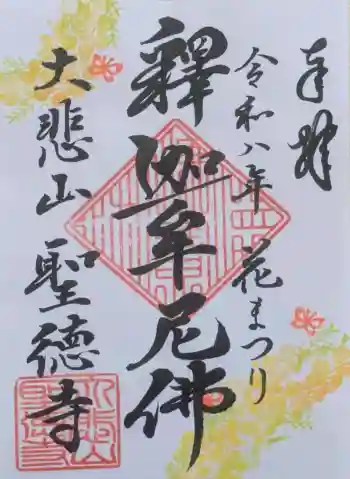 奉拝
令和八年 花まつり
釋迦牟尼佛
大悲山 聖徳寺